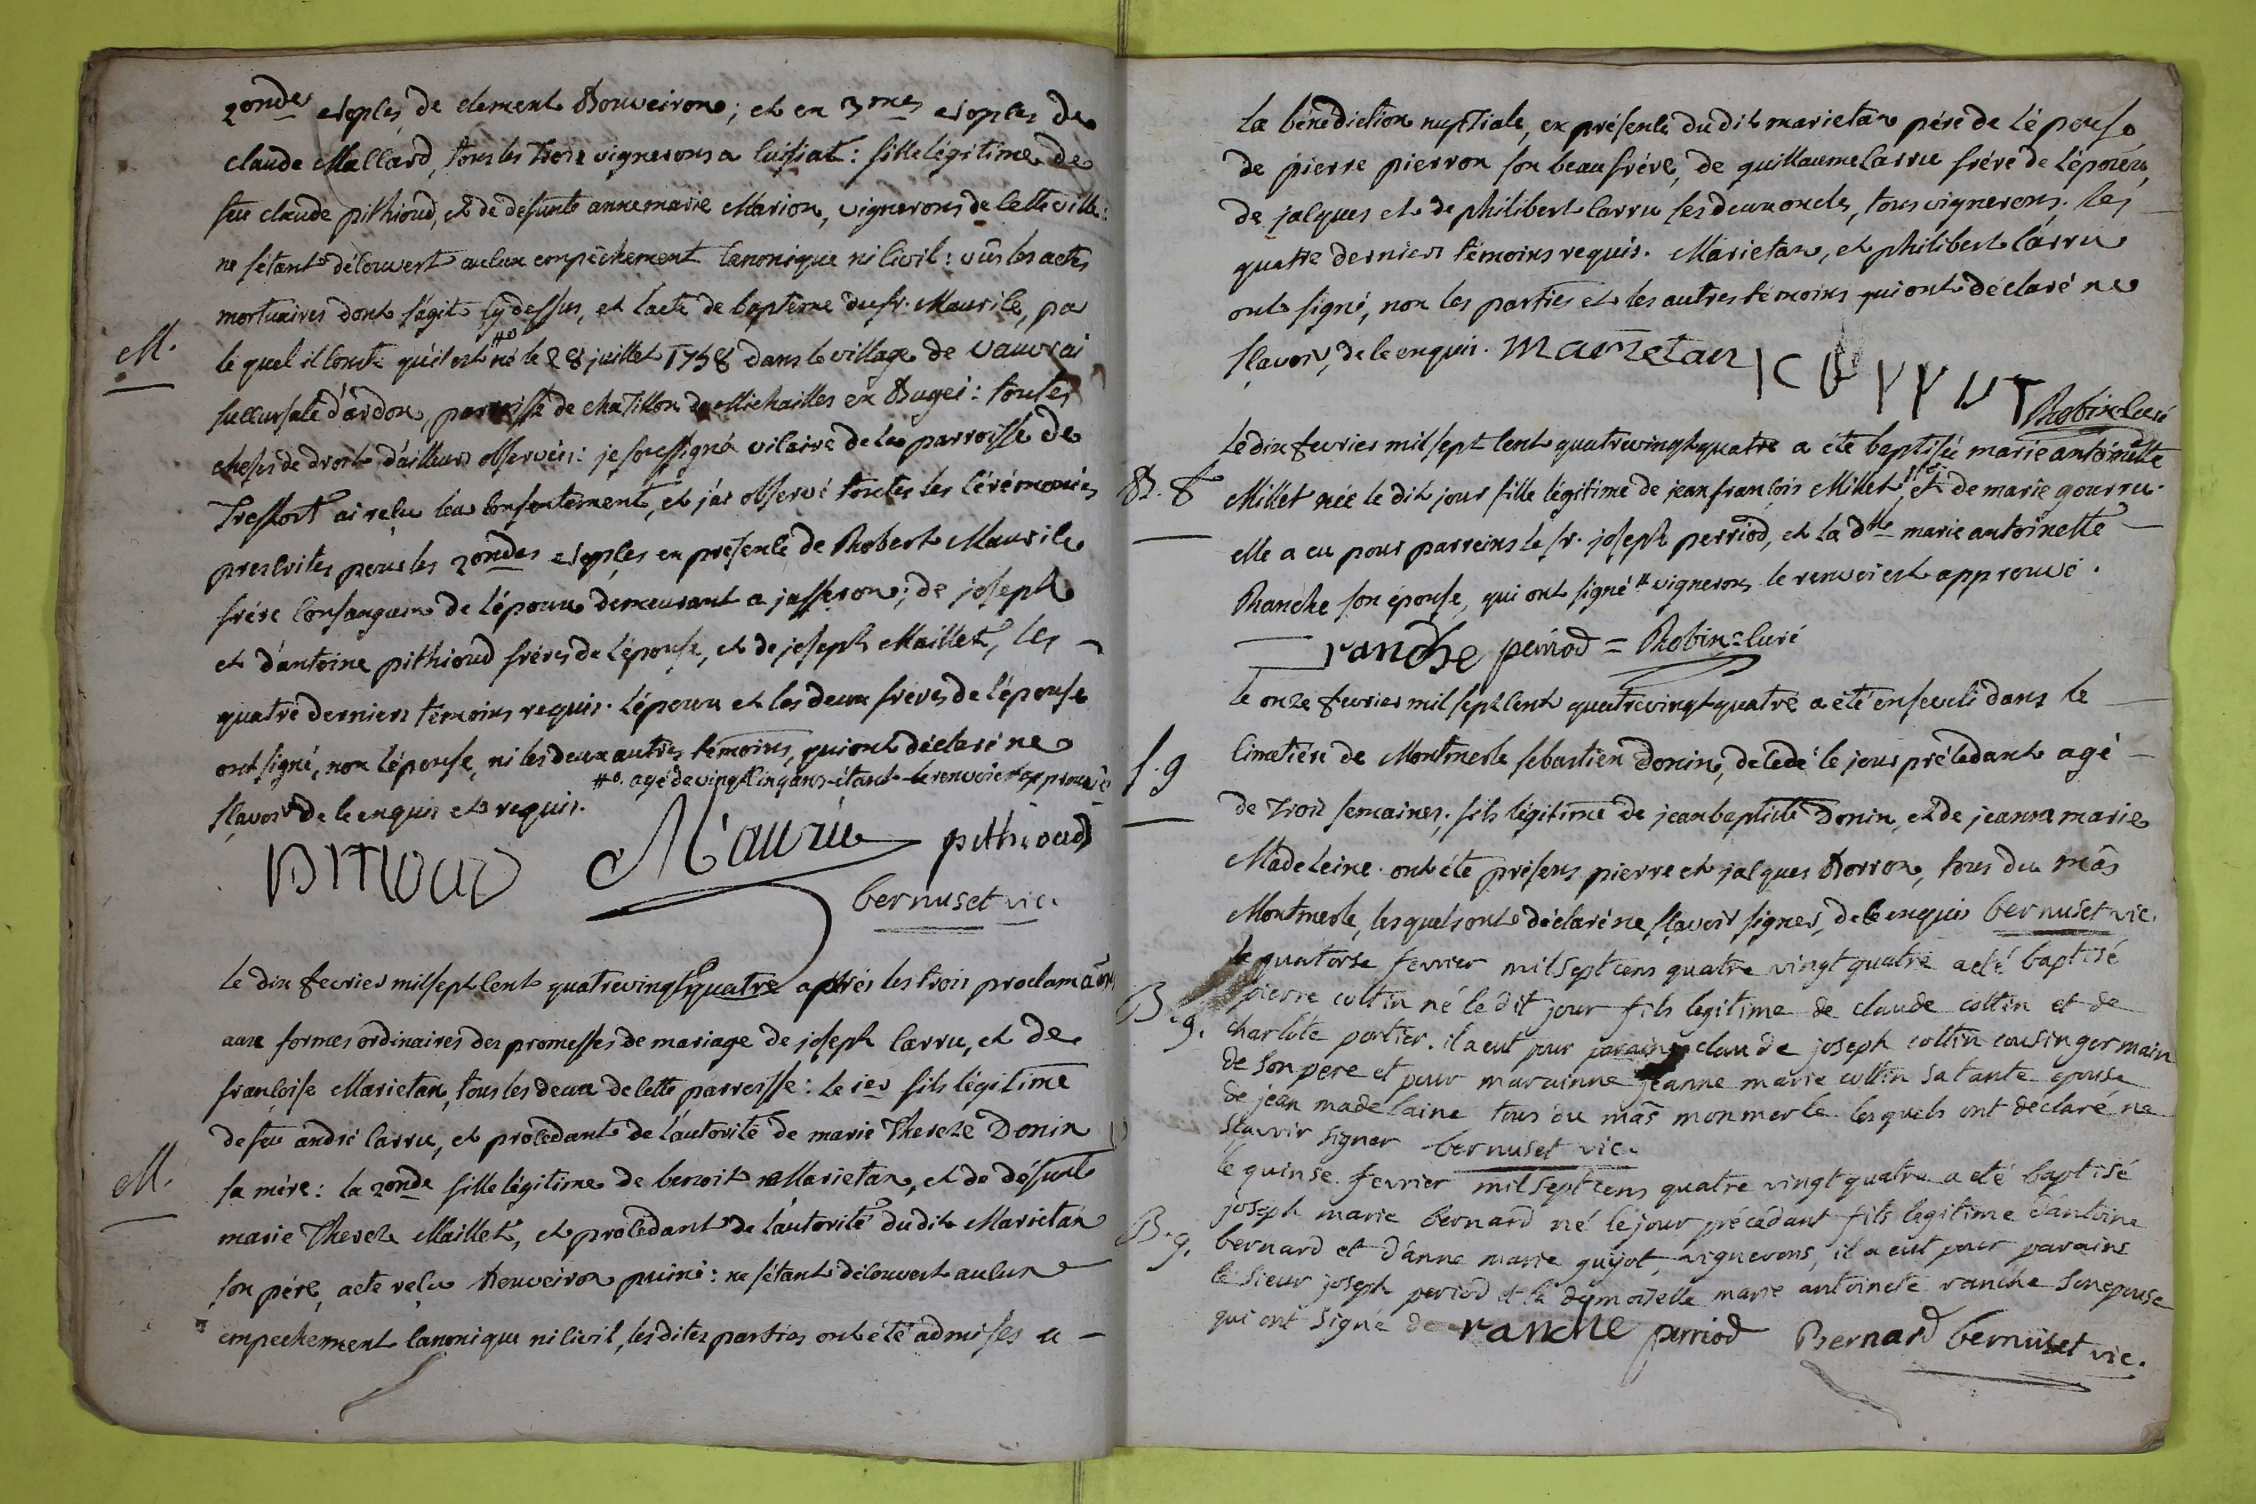 2ondes esoples de clement Bouveiron; et en 3mes esoples de
claude Mallard, tous les trois vignerons a cuisiat: fille légitime de
feu claude pithioud, et de defunte anne marie Marion, vignerons de cette ville:
ne s'étant découvert aucun empêchement canonique ni civil: vûs les actes
mortuaires dont s'agit cy dessus, et l'acte de baptême du sr. Maurile, pa
M.
le quel il conste qu'il est #° né le 28 juillet 1758 dans le village de vauvrai
succursale d'ardon, parroisse de chatillon de Michailles en Bugei: toutes
choses de droit d'ailleurs observées: je soussigné vicaire de la parroisse de
Treffort ai reçu leu consentement, et j'ai observé toutes les cérémonies
prescrites pour les 2ondes esoples en présence de Robert Maurile
frére consanguin de l'époux demeurant a jasseron; de joseph
et d'antoine pithioud fréres de l'épouse, et de joseph Maillet, les
quatre derniers témoins requis. l'époux et les deux fréres de l'épouse
ont signé, non l'épouse, ni les deux autres témoins, qui ont déclaré ne
#°. agé de vingt cinq ans étant le renvoi est approuvé
sçavoir de ce enquis et requis.
PITIOUD Maurile pithioud
bernuset vic.
le dix fevrier mil sept cent quatrevingt quatre aprés les trois proclamaons
aux formes ordinaires des promesses de mariage de joseph Carru, et de
françoise Marietan, tous les deux de cette parroisse: le 1er fils légitime
de feu andré Carru, et procédant de l'autorité de marie Thereze Donin
M.
sa mére: la 2onde fille légitime de benoit Marietan, et de défunte
marie Thereze Maillet, et procédant de l'autorité du dit Marietan
son pére, acte reçu Bouveiron puiné: ne s'étant découvert aucun
empechement canonique ni civil, les dites parties ont été admises a
la bénédiction nuptiale, en présence du dit marietan pére de l'épouse
de pierre pierron son beau frére, de guillaume Carru frére de l'époux,
de jacques et de philibert Carru ses deux oncles, tous vignerons. les
quatre derniers témoins requis. Marietan, et philibert Carru
ont signé, non les parties et les autres témoins qui ont déclaré ne
sçavoir, de ce enquis. Marietan
Robin Curé
Le dix fevrier mil sept cent quatrevingt quatre a été baptisée marie antoinette
B. 8
Millet née le dit jour fille légitime de jean françois Millet # et de marie gourru.
elle a eu pour parreins le sr. joseph perriod, et la dlle marie antoinette
Ranche son épouse, qui ont signé # vignerons le renvoi est approuvé.
ranche period = Robin = Curé
le onze fevrier mil sept cent quatrevingt quatre a été enseveli dans le
S. 9
Cimetiére de Montmerle sebastien Donin, décédé le jour précédant agé
de trois semaines, fils légitime de jean baptiste Donin, et de jeanne marie
Madeleine. ont été présens pierre et jacques Borron, tous du mâs
Montmerle, lesquels ont déclaré ne sçavoir signer, de ce enquis bernuset vic.
le quatorse fevrier mil sept cens quatre vingt quatre a eté baptisé
B. 9.
pierre cottin né le dit jour fils legitime de claude cottin et de
charlote portier. il a eut pour parain claude joseph cottin cousin germain
de son pere et pour marainne jeanne marie cottin sa tante epouse
de jean madelaine tous du mâs monmerle lesquels ont declaré ne
scavoir signer bernuset vic.
le quinse fevrier mil sept cens quatre vingt quatre a eté baptisé
joseph marie bernard né le jour précédant fils legitime d'antoine
B. 9.
bernard et d'anne marie guyot, vignerons, il a eut pour parains
le sieur joseph period et la dymoiselle marie antoinete ranche son epouse
qui ont signé ranche perriod Bernard bernuset vic.